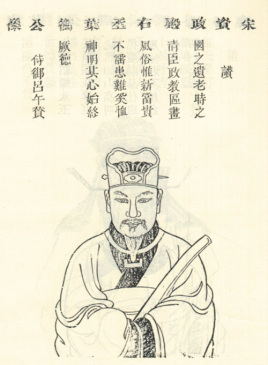 宋資政殿右丞葉公像
贊
國之遺老時之
臣政教區畫
風俗惟新富貴
不患難奚恤
神明其心始終
厥德
侍御呂午贊